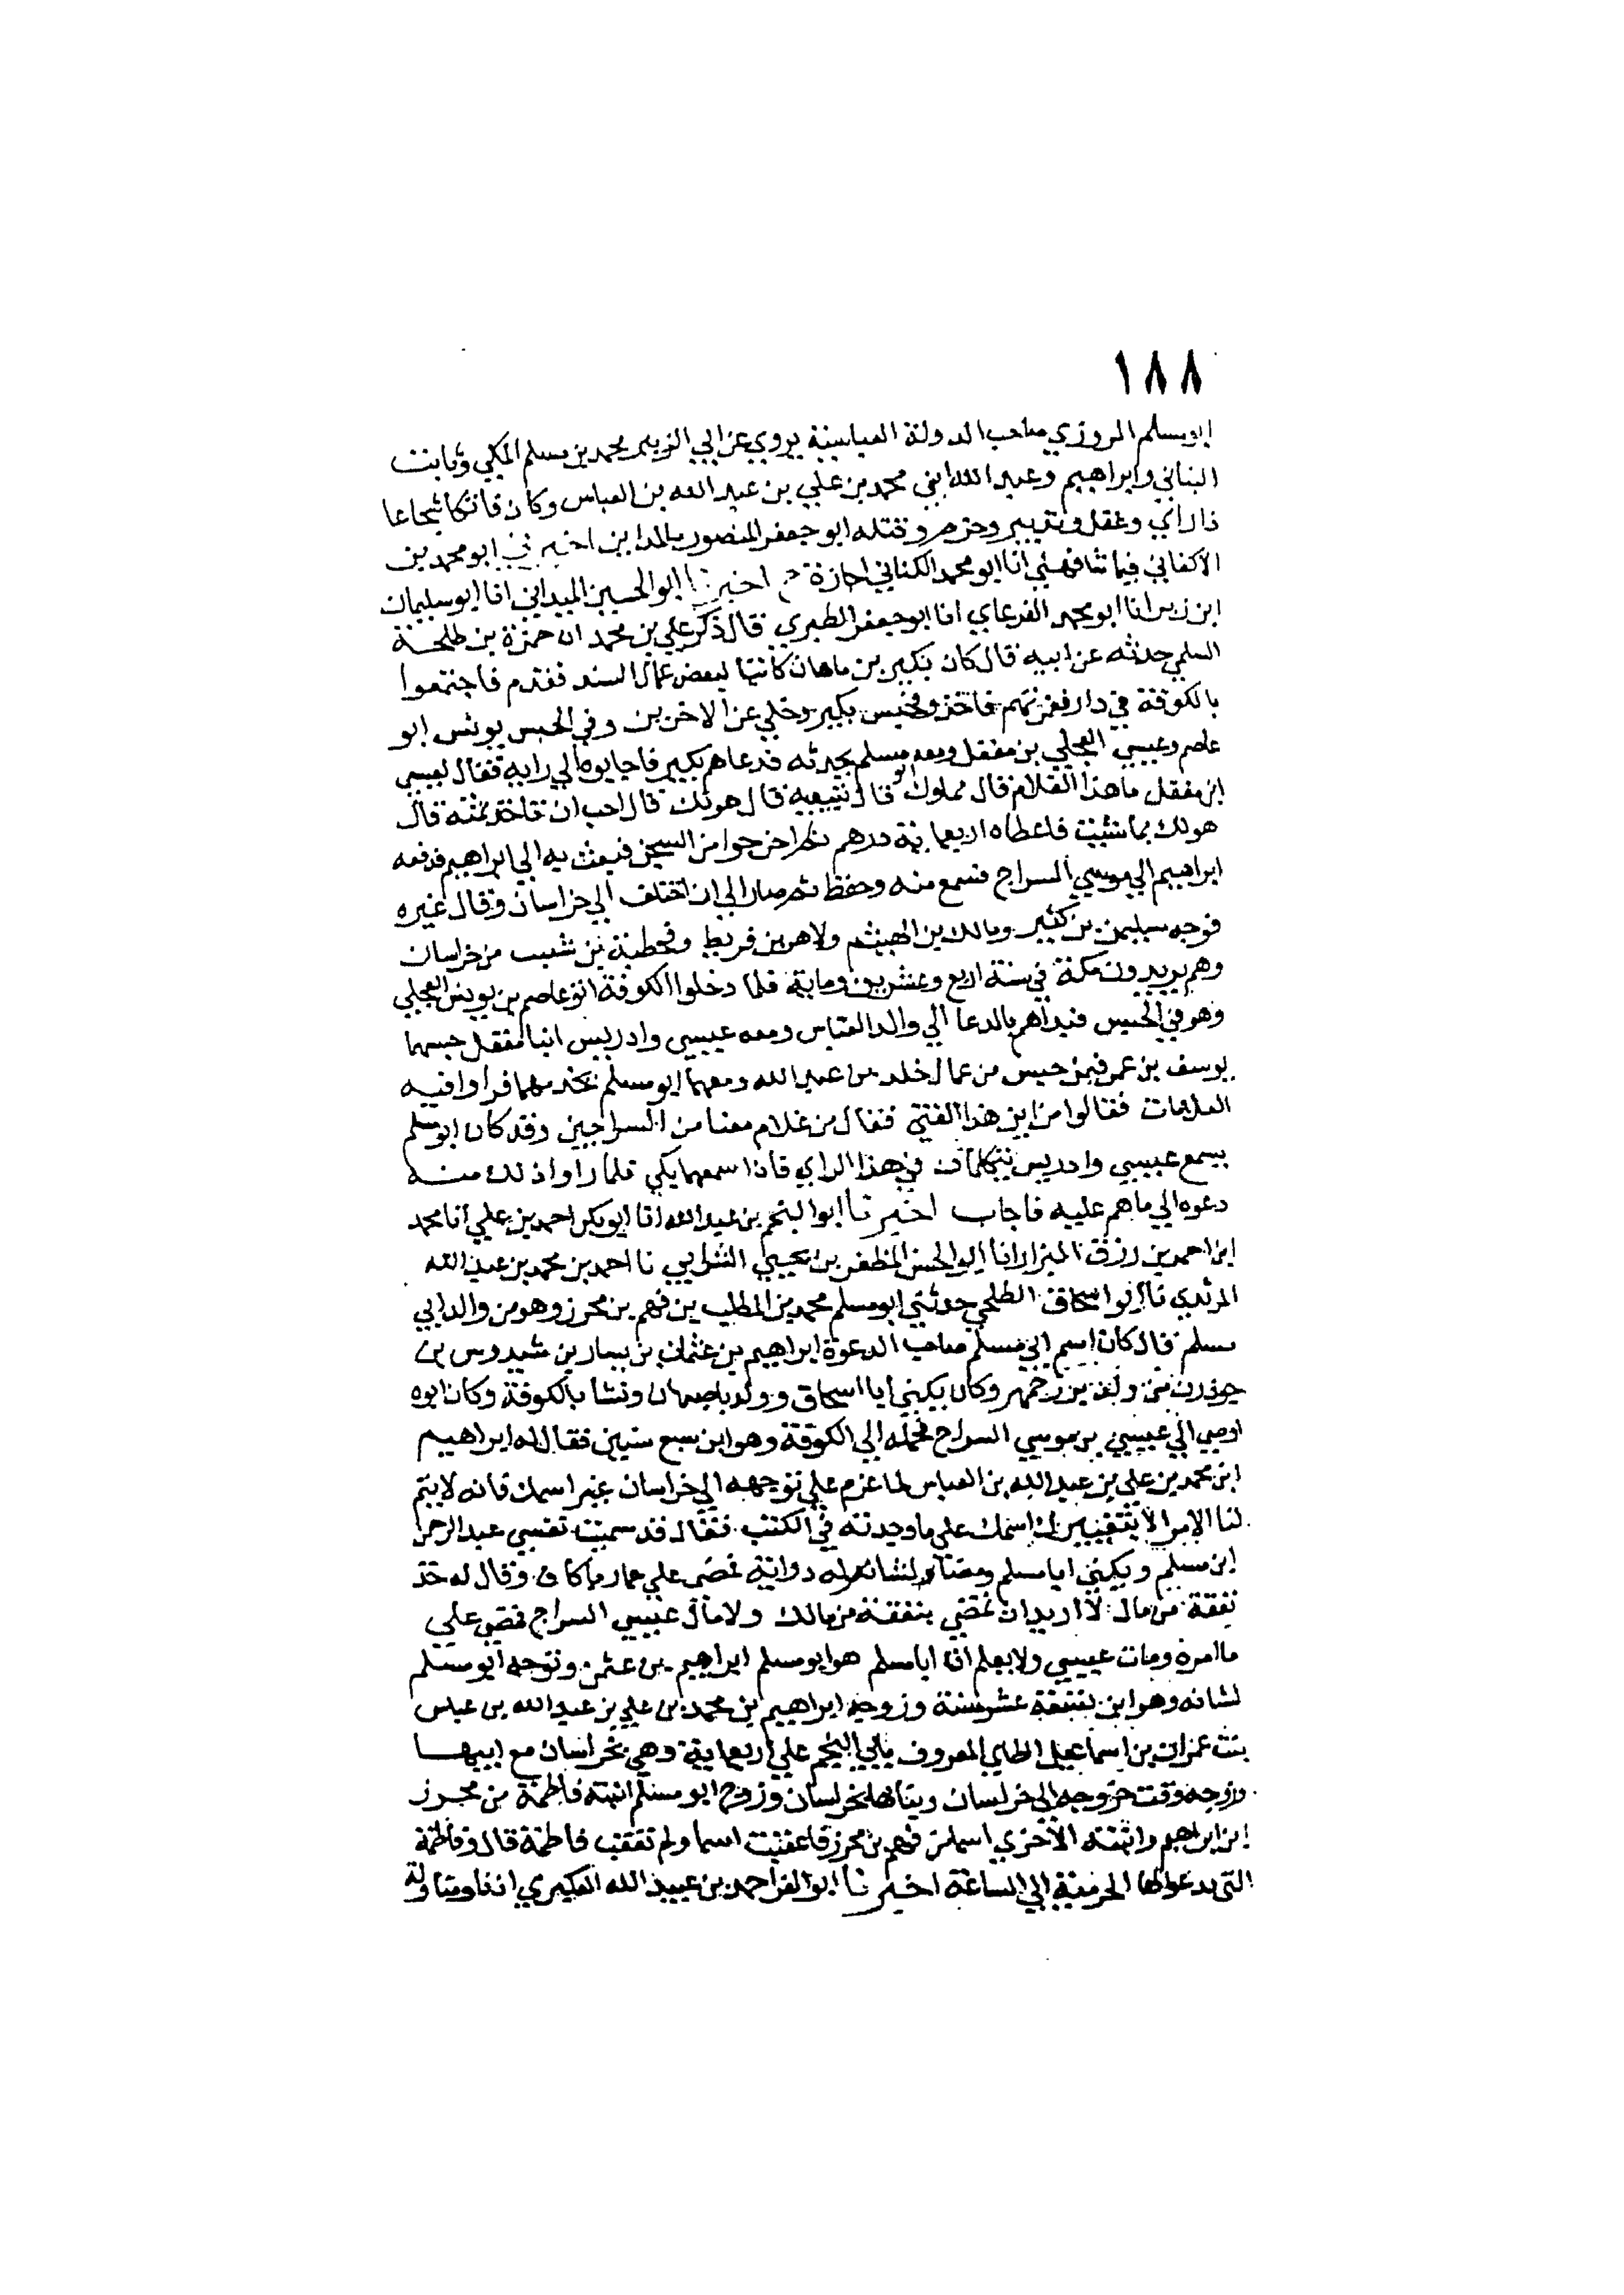 ١٨٨
ابو مسلم المروزي صاحب الدولة العباسية يروي عن ابي الزبير محمد بن مسلم المكي وثابت
البناني وابراهيم وعبد الله ابني محمد بن علي بن عبد الله بن العباس وكان فاتكا شجاعا
ذا راي وعقل وتدبير وحزم وقتله ابو جعفر المنصور بالمداين اخبرني ابو محمد بن
الاكفاني فيما شافهني انا ابو محمد الكتاني اجازة ح اخبرنا ابو الحسين الميداني انا ابو سليمان
ابن زبر انا ابو محمد الفرغاي انا ابو جعفر الطبري قال ذكر علي بن محمد ان حمزة بن طلحة
السلمي حدثه عن ابيه قال كان بكير بن ماهان كاتبا لبعض عمال السند فقدم فاجتمعوا
بالكوفة في دار فغمز بهم فاخذوا فحبس بكير وخلي عن الاخرين وفي الحبس يونس ابو
عاصم وعيسي العجلي بن مغفل ومعه مسلم يحدثه فدعاهم بكير فاجابوه الي رايه فقال لعيسي
ابن مغفل ما هذا الغلام قال مملوك قال تبيعه قال هو لك قال احب ان تاخذ ثمنه قال
هو لك بما شئت فاعطاه اربعماية درهم ثم اخرجوا من السجن فبعث به الي ابراهيم فدفعه
ابراهيم الي موسي السراج فسمع منه وحفظ ثم صار الي ان اختلف الي خراسان وقال غيره
فوجه سليمن بن كثير ومالك بن الهيثم ولاهز بن قريط وقحطبة بن شبيب من خراسان
وهم يريدون مكة في سنة اربع وعشرين وماية فلما دخلوا الكوفة اتو عاصم بن يونس العجلي
وهو في الحبس فبداهم بالدعا الي والد العباس ومعه عيسي وادريس ابنا مغفل حبسهما
يوسف بن عمر فيمن حبس من عمال خلد بن عبد الله ومعهما ابو مسلم يخدمهما فراوا فيه
العلامات فقالوا من اين هذا الفتي فقال من غلام معنا من السراجين وقد كان ابو مسلم
يسمع عيسي وادريس يتكلمان في هذا الراي فاذا سمعهما بكي فلما راوا ذلك منه
دعوه الي ما هم عليه فاجاب اخبرنا ابو النجم بن عبد الله انا ابو بكر احمد بن علي انا محمد
ابن احمد بن رزق البزار انا ابو الحسن المظفر بن يحيي الشرابي نا احمد بن محمد بن عبد الله
المرثدي نا ابو اسحاق الطلحي حدثني ابو مسلم محمد بن المطلب بن فهم بن محرز وهو من والد ابي
مسلم قال كان اسم ابي مسلم صاحب الدعوة ابراهيم بن عثمان بن يسار بن شيدوس بن
جوذرن من ولد بزرجمهر وكان يكني ابا اسحاق وولد باصبهان ونشا بالكوفة وكان ابوه
اوصي الي عيسي بن موسي السراج فحمله الي الكوفة وهو ابن سبع سنين فقال له ابراهيم
ابن محمد بن علي بن عبد الله بن العباس لما عزم علي توجهه الي خراسان غير اسمك فانه لا يتم
لنا الامر الا بتغيير اسمك علي ما وجدته في الكتب فقال قد سميت نفسي عبد الرحمن
ابن مسلم ويكني ابا مسلم ومضا لشانه وله ذوابة فمضي علي حمار باكاف وقال له خذ
نفقة من مال لا اريد ان تمضي بنفقة من مالك ولا مال عيسي السراج فمضي علي
ما امره ومات عيسي ولا يعلم ان ابا مسلم هو ابو مسلم ابراهيم بن عثمن وتوجه ابو مسلم
لشانه وهو ابن تسعة عشر سنة وزوجه ابراهيم بن محمد بن علي بن عبد الله بن عباس
بنت عمران بن اسماعيل الطاي المعروف بابي النجم علي اربعماية وهي بخراسان مع ابيها
وزوجه وقت خروجه الي خراسان وبنا بها بخراسان وزوج ابو مسلم ابنته فاطمة من محرز
ابن ابراهيم وابنته الاخري اسما من فهم بن محرز فاعقبت اسما ولم تعقب فاطمة قال وفاطمة
التي يدعوا لها الخرمية الي الساعة اخبرنا ابو العز احمد بن عبيد الله العكبري اذنا ومناولة